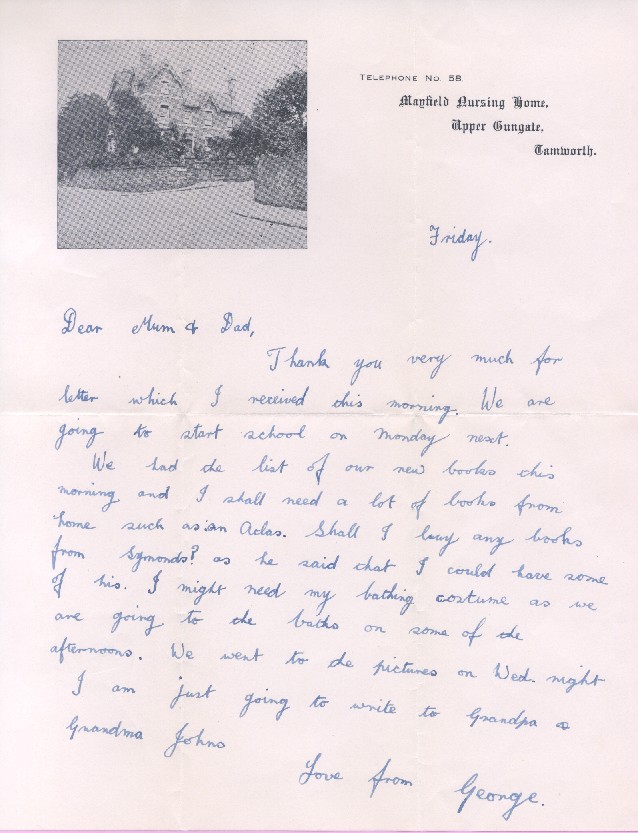 TELEPHONE NO. 58
Mayfield Nursing Home,
Upper Gungate,
Tamworth.
Friday.
Dear Mum & Dad,
Thank you very much for
letter which I received this morning. We are
going to start school on Monday next.
We had the list of our new books this
morning and I shall need a lot of books from
home such as an Atlas. Shall I buy any books
from Symonds? as he said that I could have some
of his. I might need my bathing costume as we
are going to the baths on some of the
afternoons. We went to the pictures on Wed. night
I am just going to write to Grandpa &
Grandma Johns
Love from George.